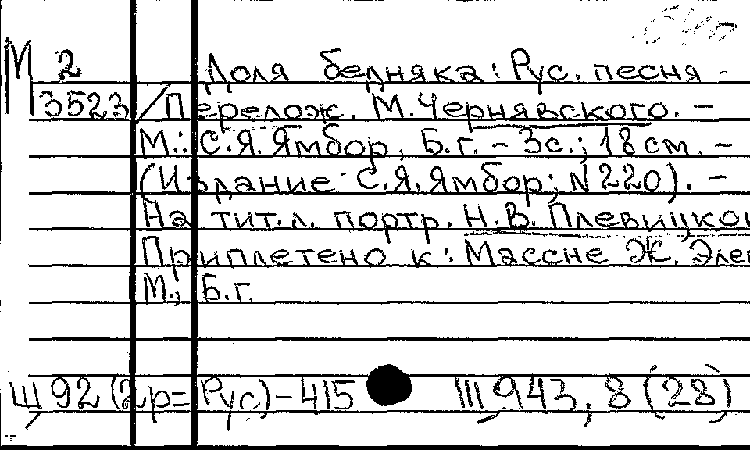 М 2 Доля бедняка: Рус. песня -
3523 /Перелож. М. Чернявского. -
М.: С.Я. Ямбор, Б.г. - 3с.; 18 см. -
(Издание С.Я. Ямбор; N 220). -
На тит. л. портр. Н.В. Плевицкой
Приплетено к: Массне Ж. Элег
М., Б.г.
Щ 92 (2р=Рус)-415 Щ 943,8 (28)